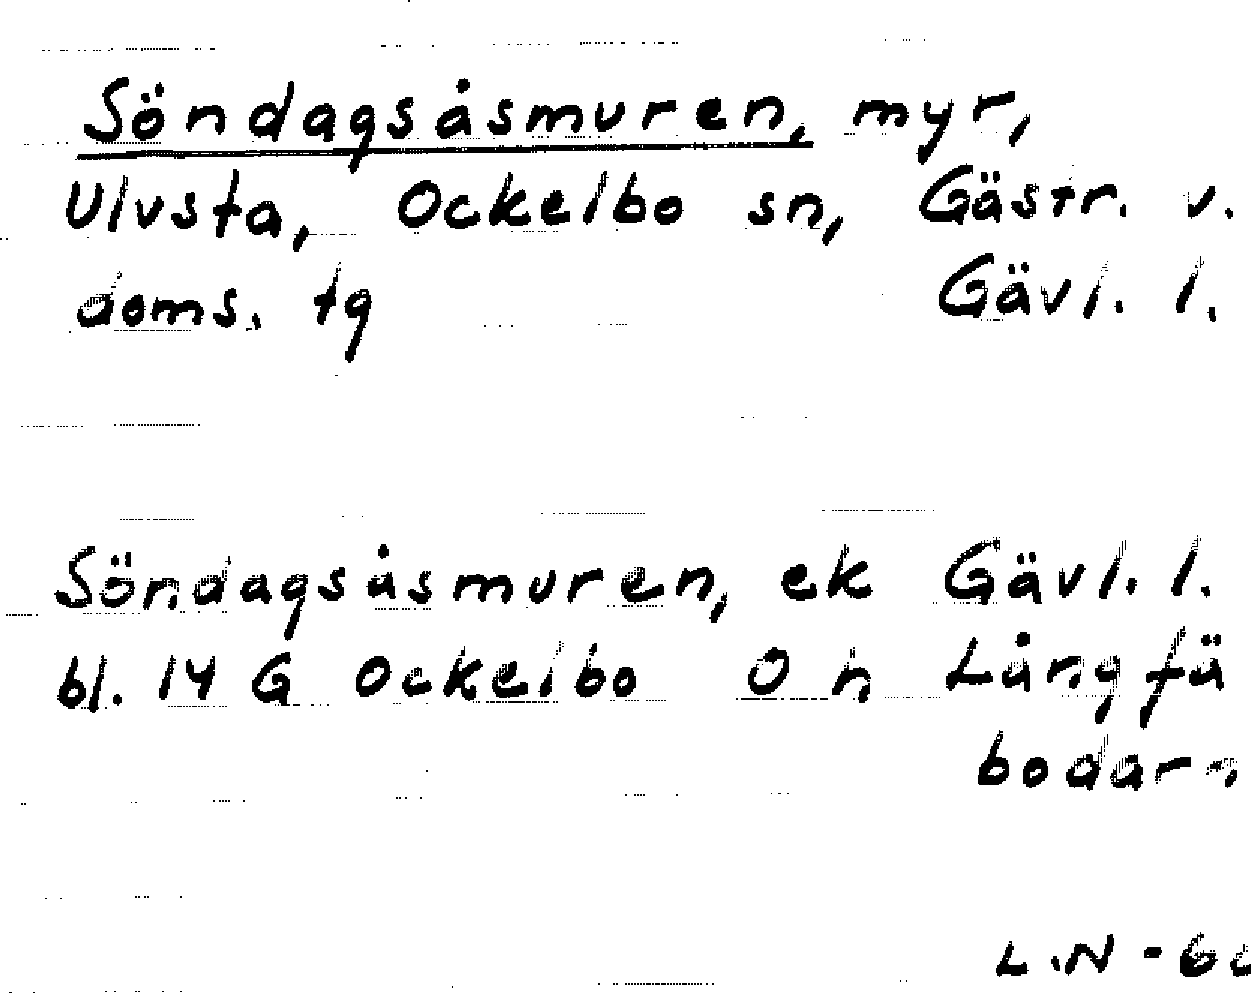 Söndagsåsmuren, myr,
Ulvsta, Ockelbo sn, Gästr. v.
doms. tg Gävl. l.
Söndagsåsmuren, ek Gävl. l.
bl. 14 G Ockelbo O n Långfä
bodarn
L.N -6